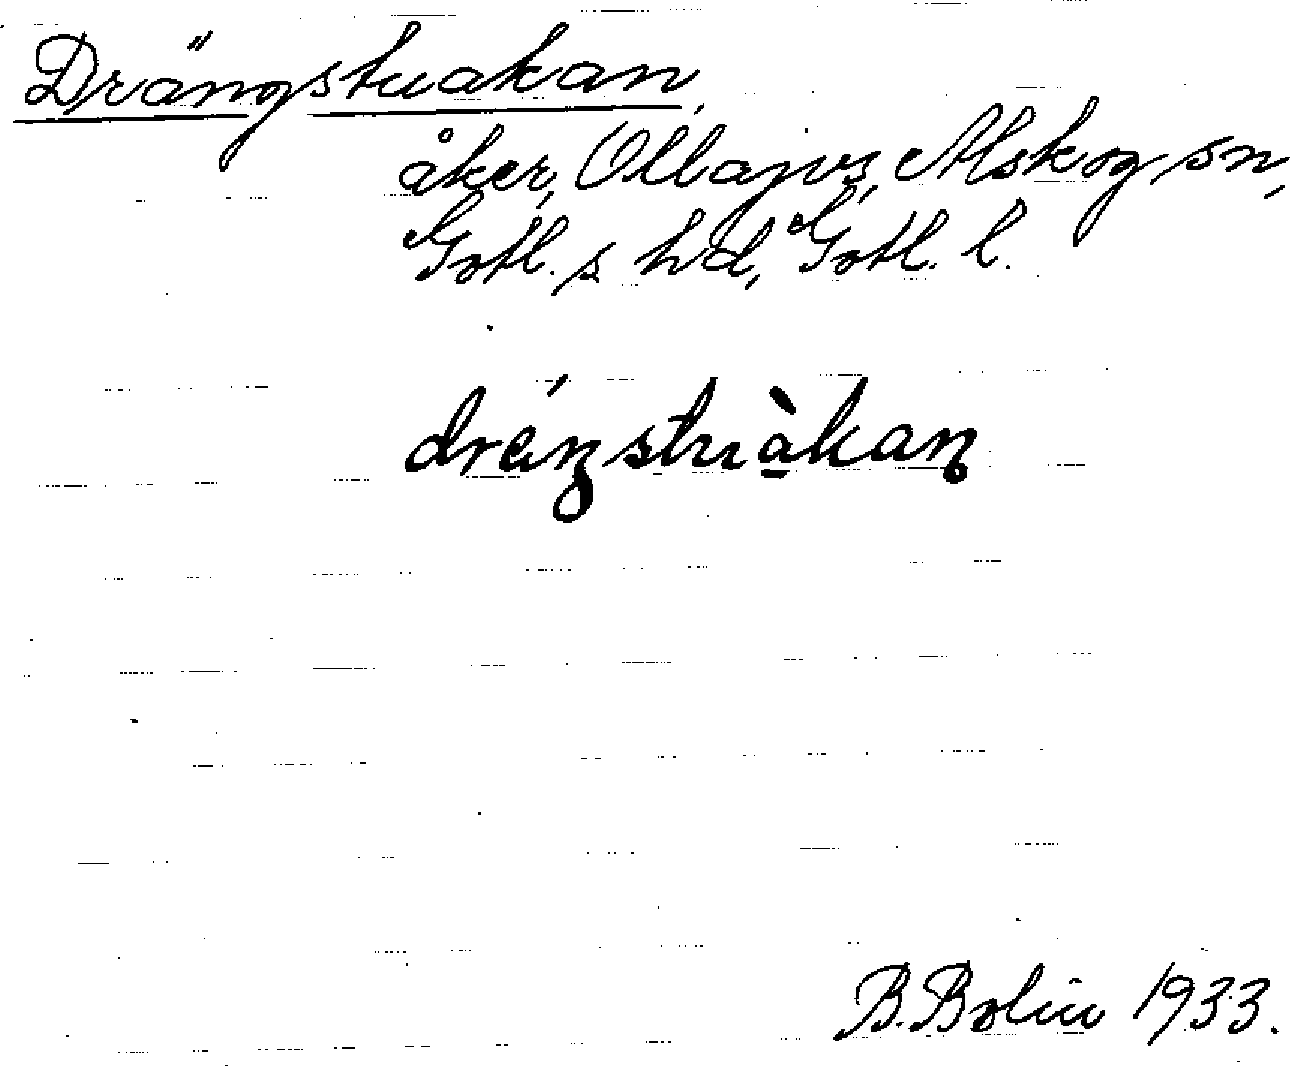 Drängstuakan,
åker, Ollajvs, Alskog sn,
Gotl. s hd, Gotl. l.
dráŋstuàkan̥
B. Bolin 1933.